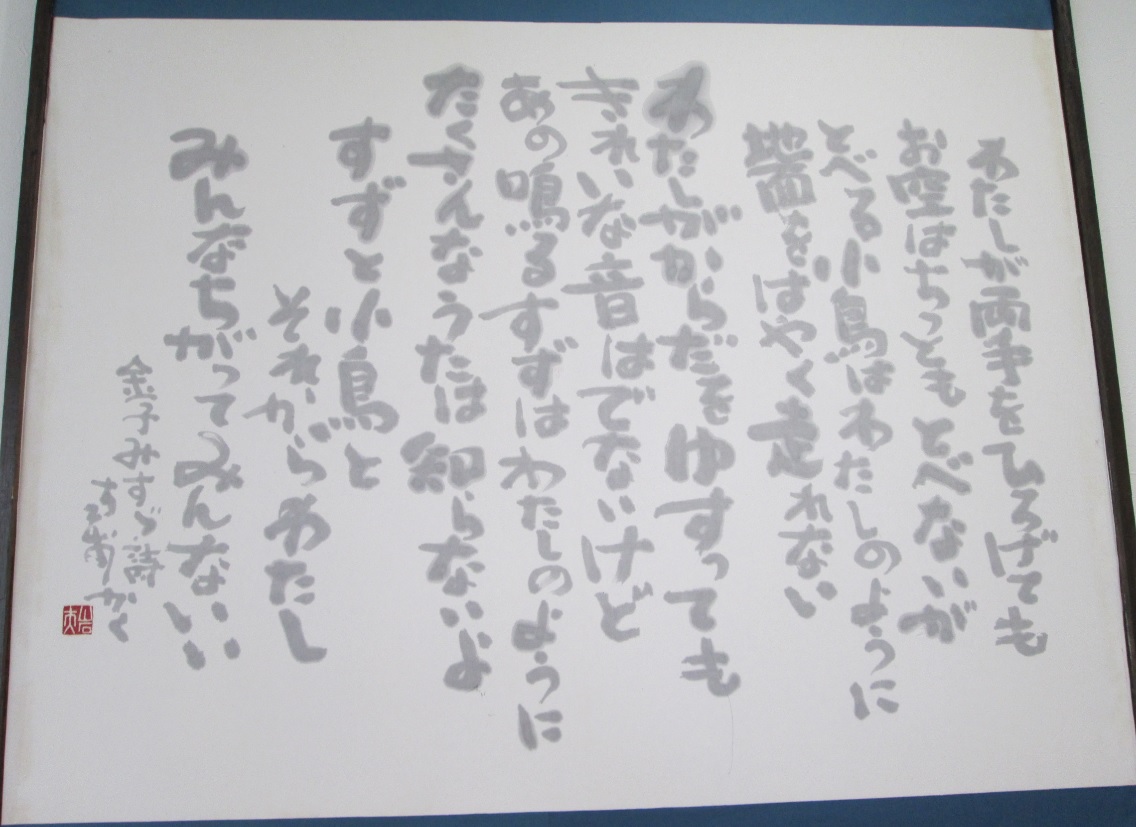 わたしが両手をひろげても
お空はちっともとべないが
とべる小鳥はわたしのように
地面をはやく走れない
わたしがからだをゆすっても
きれいな音はでないけど
あの鳴るすずはわたしのように
たくさんなうたは知らないよ
すずと小鳥と
それからわたし
みんなちがってみんないい
金子みすゞ詩
かく